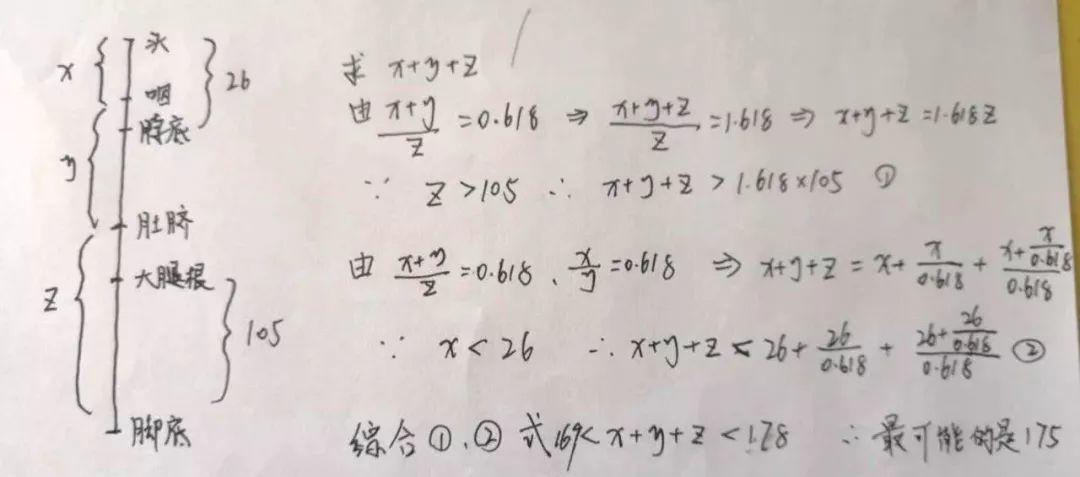 x 头 26
咽
脖底
y
肚脐
z 大腿根
105
脚底
求 x+y+z
由 (x+y)/z =0.618 ⇒ (x+y+z)/z =1.618 ⇒ x+y+z =1.618z
∵ z >105 ∴ x+y+z > 1.618×105 ①
由 (x+y)/z =0.618、x/y =0.618 ⇒ x+y+z = x+ x/0.618 + (x+ x/0.618)/0.618
∵ x < 26 ∴ x+y+z < 26+ 26/0.618 + (26+ 26/0.618)/0.618 ②
综合①、②式 169< x+y+z <178 ∴ 最可能的是175